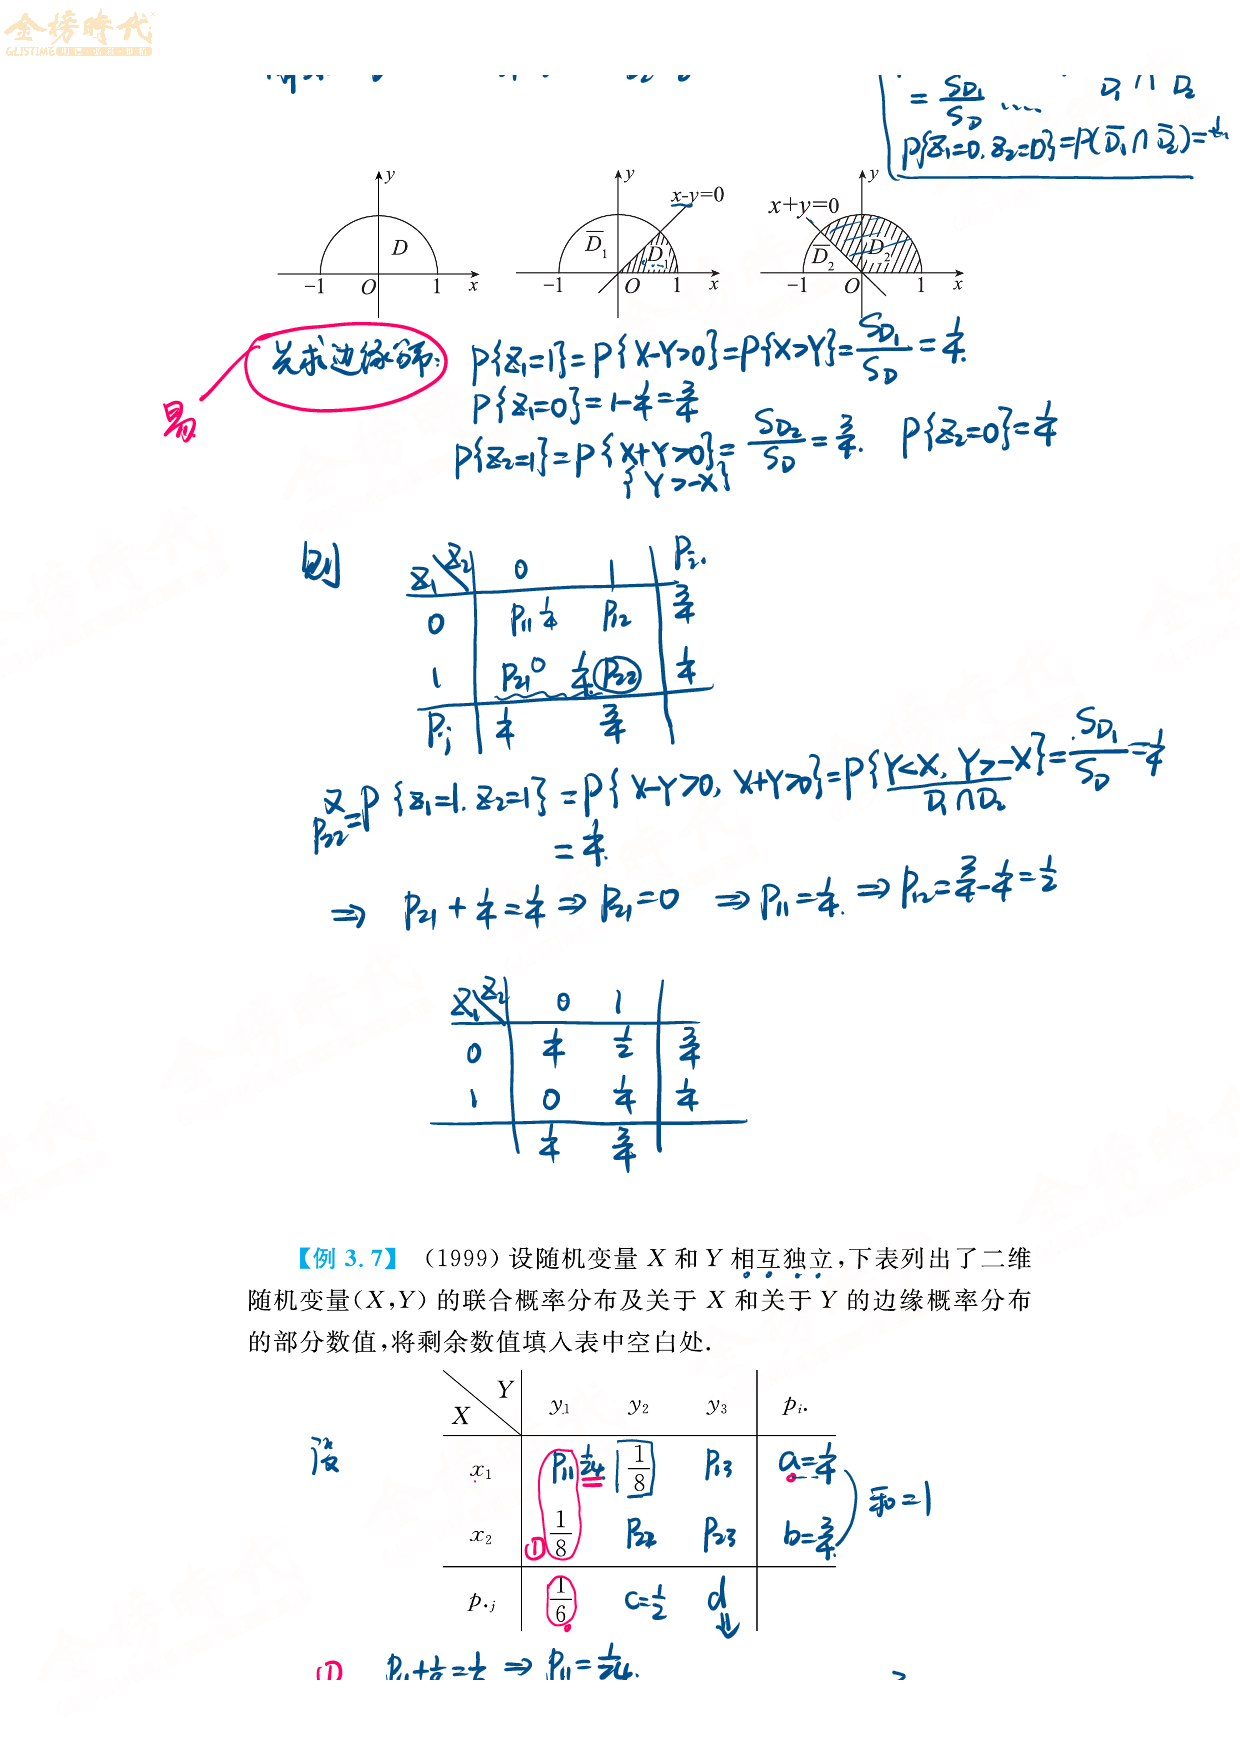 金榜時代
GLISTIME
= S_D₁/S_D ····
D₁ ∩ D₂
P{Z₁=0, Z₂=0}=P(D̅₁∩D̅₂)=
y
D
-1 O 1 x
y
x-y=0
D̅₁ D₁
-1 O 1 x
y
x+y=0
D̅₂ D₂
-1 O 1 x
易
先求边缘分布: P{Z₁=1}=P{X-Y>0}=P{X>Y}=S_D₁/S_D=1/4.
P{Z₁=0}=1-1/4=3/4
P{Z₂=1}=P{X+Y>0}=S_D₂/S_D=3/4. P{Z₂=0}=1/4
{Y>-X}
则
Z₁ Z₂ 0 1 Pᵢ.
0 P₁₁ 1/4 P₁₂ 3/4
1 P₂₁ 0 1/4 P₂₂ 1/4
P.ⱼ 1/4 3/4
又 P₂₂=P{Z₁=1, Z₂=1}=P{X-Y>0, X+Y>0}=P{Y<X, Y>-X}=S_D₁/S_D=1/4
D₁∩D₂
=1/4.
⇒ P₂₁+1/4=1/4 ⇒ P₂₁=0 ⇒ P₁₁=1/4. ⇒ P₁₂=3/4-1/4=1/2
Z₁ Z₂ 0 1
0 1/4 1/2 3/4
1 0 1/4 1/4
1/4 3/4
【例 3.7】 (1999) 设随机变量 X 和 Y 相互独立,下表列出了二维
随机变量(X,Y) 的联合概率分布及关于 X 和关于 Y 的边缘概率分布
的部分数值,将剩余数值填入表中空白处.
X Y y₁ y₂ y₃ pᵢ.
设
x₁ P₁₁ 1/24 1/8 P₁₃ a=1/4
和=1
x₂ ① 1/8 P₂₂ P₂₃ b=3/4.
p.ⱼ 1/6 c=1/2 d
① P₁₁+1/8=1/6 ⇒ P₁₁=1/24.